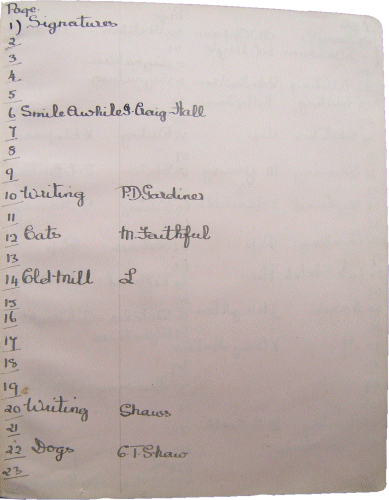 Page.
1) Signatures
2
3
4
5
6 Smile Awhile J. Craig-Hall
7
8
9
10 Writing P.D. Gardiner
11
12 Cats M. Faithful
13
14 Old Mill L
15
16
17
18
19
20 Writing Shaws
21
22 Dogs G T. Shaw
23